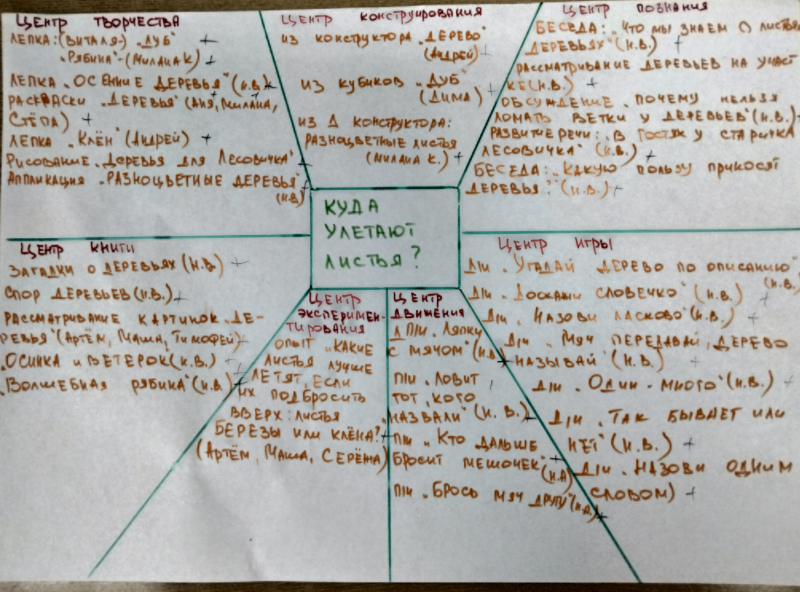 Центр творчества
Лепка: (Виталя) „Дуб" +
„Рябина"- (Милана К) +
Лепка „Осенние деревья" (Н.В.) +
Раскраски „Деревья" (Аня, Милана,
Стёпа) +
Лепка „Клён" (Андрей) +
Рисование „Деревья для Лесовичка" +
Аппликация „Разноцветные деревья"
(Н.В) +
Центр конструирования
из конструктора „Дерево"
(Андрей) +
из кубиков „Дуб"
(Дима) +
из Δ конструктора:
разноцветные листья
(Милана К.) +
Центр познания
Беседа: „Что мы знаем о
деревьях" (Н.В.) +
Рассматривание деревьев на участ
ке (Н.В.) +
Обсуждение „Почему нельзя
ломать ветки у деревьев" (Н.В.) +
Развитие речи: „В гостях у старичка
Лесовичка" (Н.В.) +
Беседа: „Какую пользу приносят
деревья?" (Н.В.) +
Куда
улетают
листья?
Центр книги
Загадки о деревьях (Н.В.) +
Спор деревьев (Н.В.) +
Рассматривание картинок „Де-
ревья" (Артём, Маша, Тимофей) +
„Осинка и ветерок" (Н.В.) +
„Волшебная рябина" (Н.В.) +
Центр
эксперимен-
тирования
Опыт „Какие
листья лучше
летят, если
их подбросить
вверх: листья
березы или клёна? +
(Артём, Маша, Серёжа)
Центр
движения
П/и „Ляпки
с мячом" (Н.В.)
П/и „Ловит
тот, кого
назвали" (Н.В.) +
П/и „Кто дальше
бросит мешочек" (Н.А)
П/и „Брось мяч другу" (Н.А.) +
Центр игры
Д/и „Угадай дерево по описанию"
(Н.В.) +
Д/и „Доскажи словечко" (Н.В.) +
Д/и „Назови ласково" (Н.В.) +
Д/и „Мяч передавай, дерево
называй" (Н.В.) +
Д/и „Один - много" (Н.В.) +
Д/и „Так бывает или
нет" (Н.В.) +
Д/и „Назови одним
словом) +